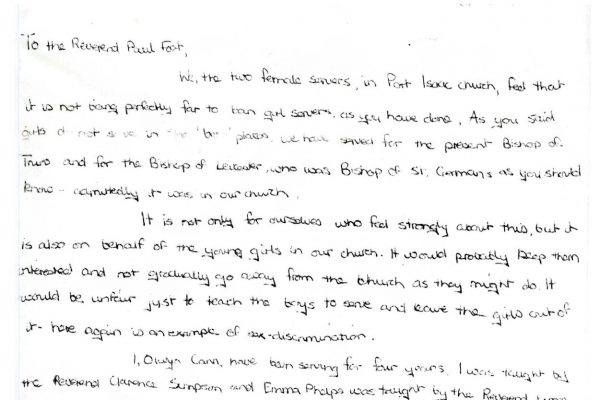 To the Reverend Paul Foot,
We, the two female servers, in Port Isaac church, feel that
it is not being perfectly fair to ban girl servers, as you have done. As you said
girls do not serve in the places, we have served for the present Bishop of
Truro and for the Bishop of Leicester, who was Bishop of St. Germans as you should
know - admittedly it was in our church.
It is not only for ourselves who feel strongly about this, but it
is also on behalf of the young girls in our church. It would probably keep them
interested and not gradually go away from the church as they might do. It
would be unfair just to teach the boys to serve and leave the girls out of
it - here again is an example of sex-discrimination.
I, Olwyn Cann, have been serving for four years. I was taught by
the Reverend Clarence Simpson and Emma Phelps was taught by the Reverend